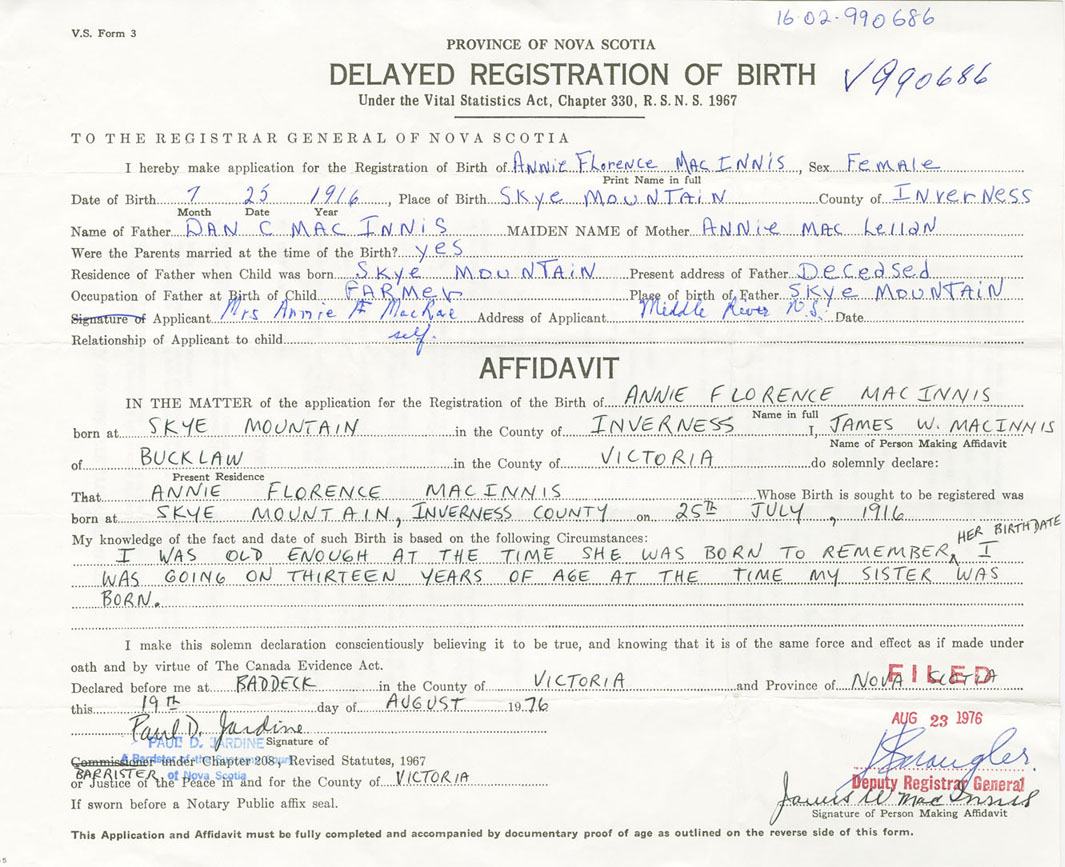 16-02-990686
V.S. Form 3
PROVINCE OF NOVA SCOTIA
DELAYED REGISTRATION OF BIRTH √990686
Under the Vital Statistics Act, Chapter 330, R. S. N. S. 1967
TO THE REGISTRAR GENERAL OF NOVA SCOTIA
I hereby make application for the Registration of Birth of Annie Florence Mac Innis, Sex Female
Print Name in full
Date of Birth 7 25 1916, Place of Birth Skye Mountain County of Inverness
Month Date Year
Name of Father Dan C Mac Innis MAIDEN NAME of Mother Annie Mac Lellan
Were the Parents married at the time of the Birth? yes
Residence of Father when Child was born Skye Mountain Present address of Father Deceased
Occupation of Father at Birth of Child Farmer Place of birth of Father Skye Mountain
Signature of Applicant Mrs Annie F MacRae Address of Applicant Middle River N.S. Date
Relationship of Applicant to child self.
AFFIDAVIT
IN THE MATTER of the application for the Registration of the Birth of ANNIE FLORENCE MACINNIS
Name in full
born at SKYE MOUNTAIN in the County of INVERNESS I, JAMES W. MACINNIS
Name of Person Making Affidavit
of BUCKLAW in the County of VICTORIA do solemnly declare:
Present Residence
That ANNIE FLORENCE MACINNIS Whose Birth is sought to be registered was
born at SKYE MOUNTAIN, INVERNESS COUNTY on 25TH JULY, 1916
My knowledge of the fact and date of such Birth is based on the following Circumstances: HER BIRTHDATE
I WAS OLD ENOUGH AT THE TIME SHE WAS BORN TO REMEMBER, I
WAS GOING ON THIRTEEN YEARS OF AGE AT THE TIME MY SISTER WAS
BORN.
I make this solemn declaration conscientiously believing it to be true, and knowing that it is of the same force and effect as if made under
oath and by virtue of The Canada Evidence Act.
Declared before me at BADDECK in the County of VICTORIA and Province of NOVA SCOTIA
FILED
this 19TH day of AUGUST 1976
AUG 23 1976
Paul D. Jardine
PAUL D. JARDINE Signature of
A Barrister of the Supreme Court
Commissioner under Chapter 208, Revised Statutes, 1967
BARRISTER of Nova Scotia
or Justice of the Peace in and for the County of VICTORIA
Deputy Registrar General
James W Mac Innis
If sworn before a Notary Public affix seal.
Signature of Person Making Affidavit
This Application and Affidavit must be fully completed and accompanied by documentary proof of age as outlined on the reverse side of this form.